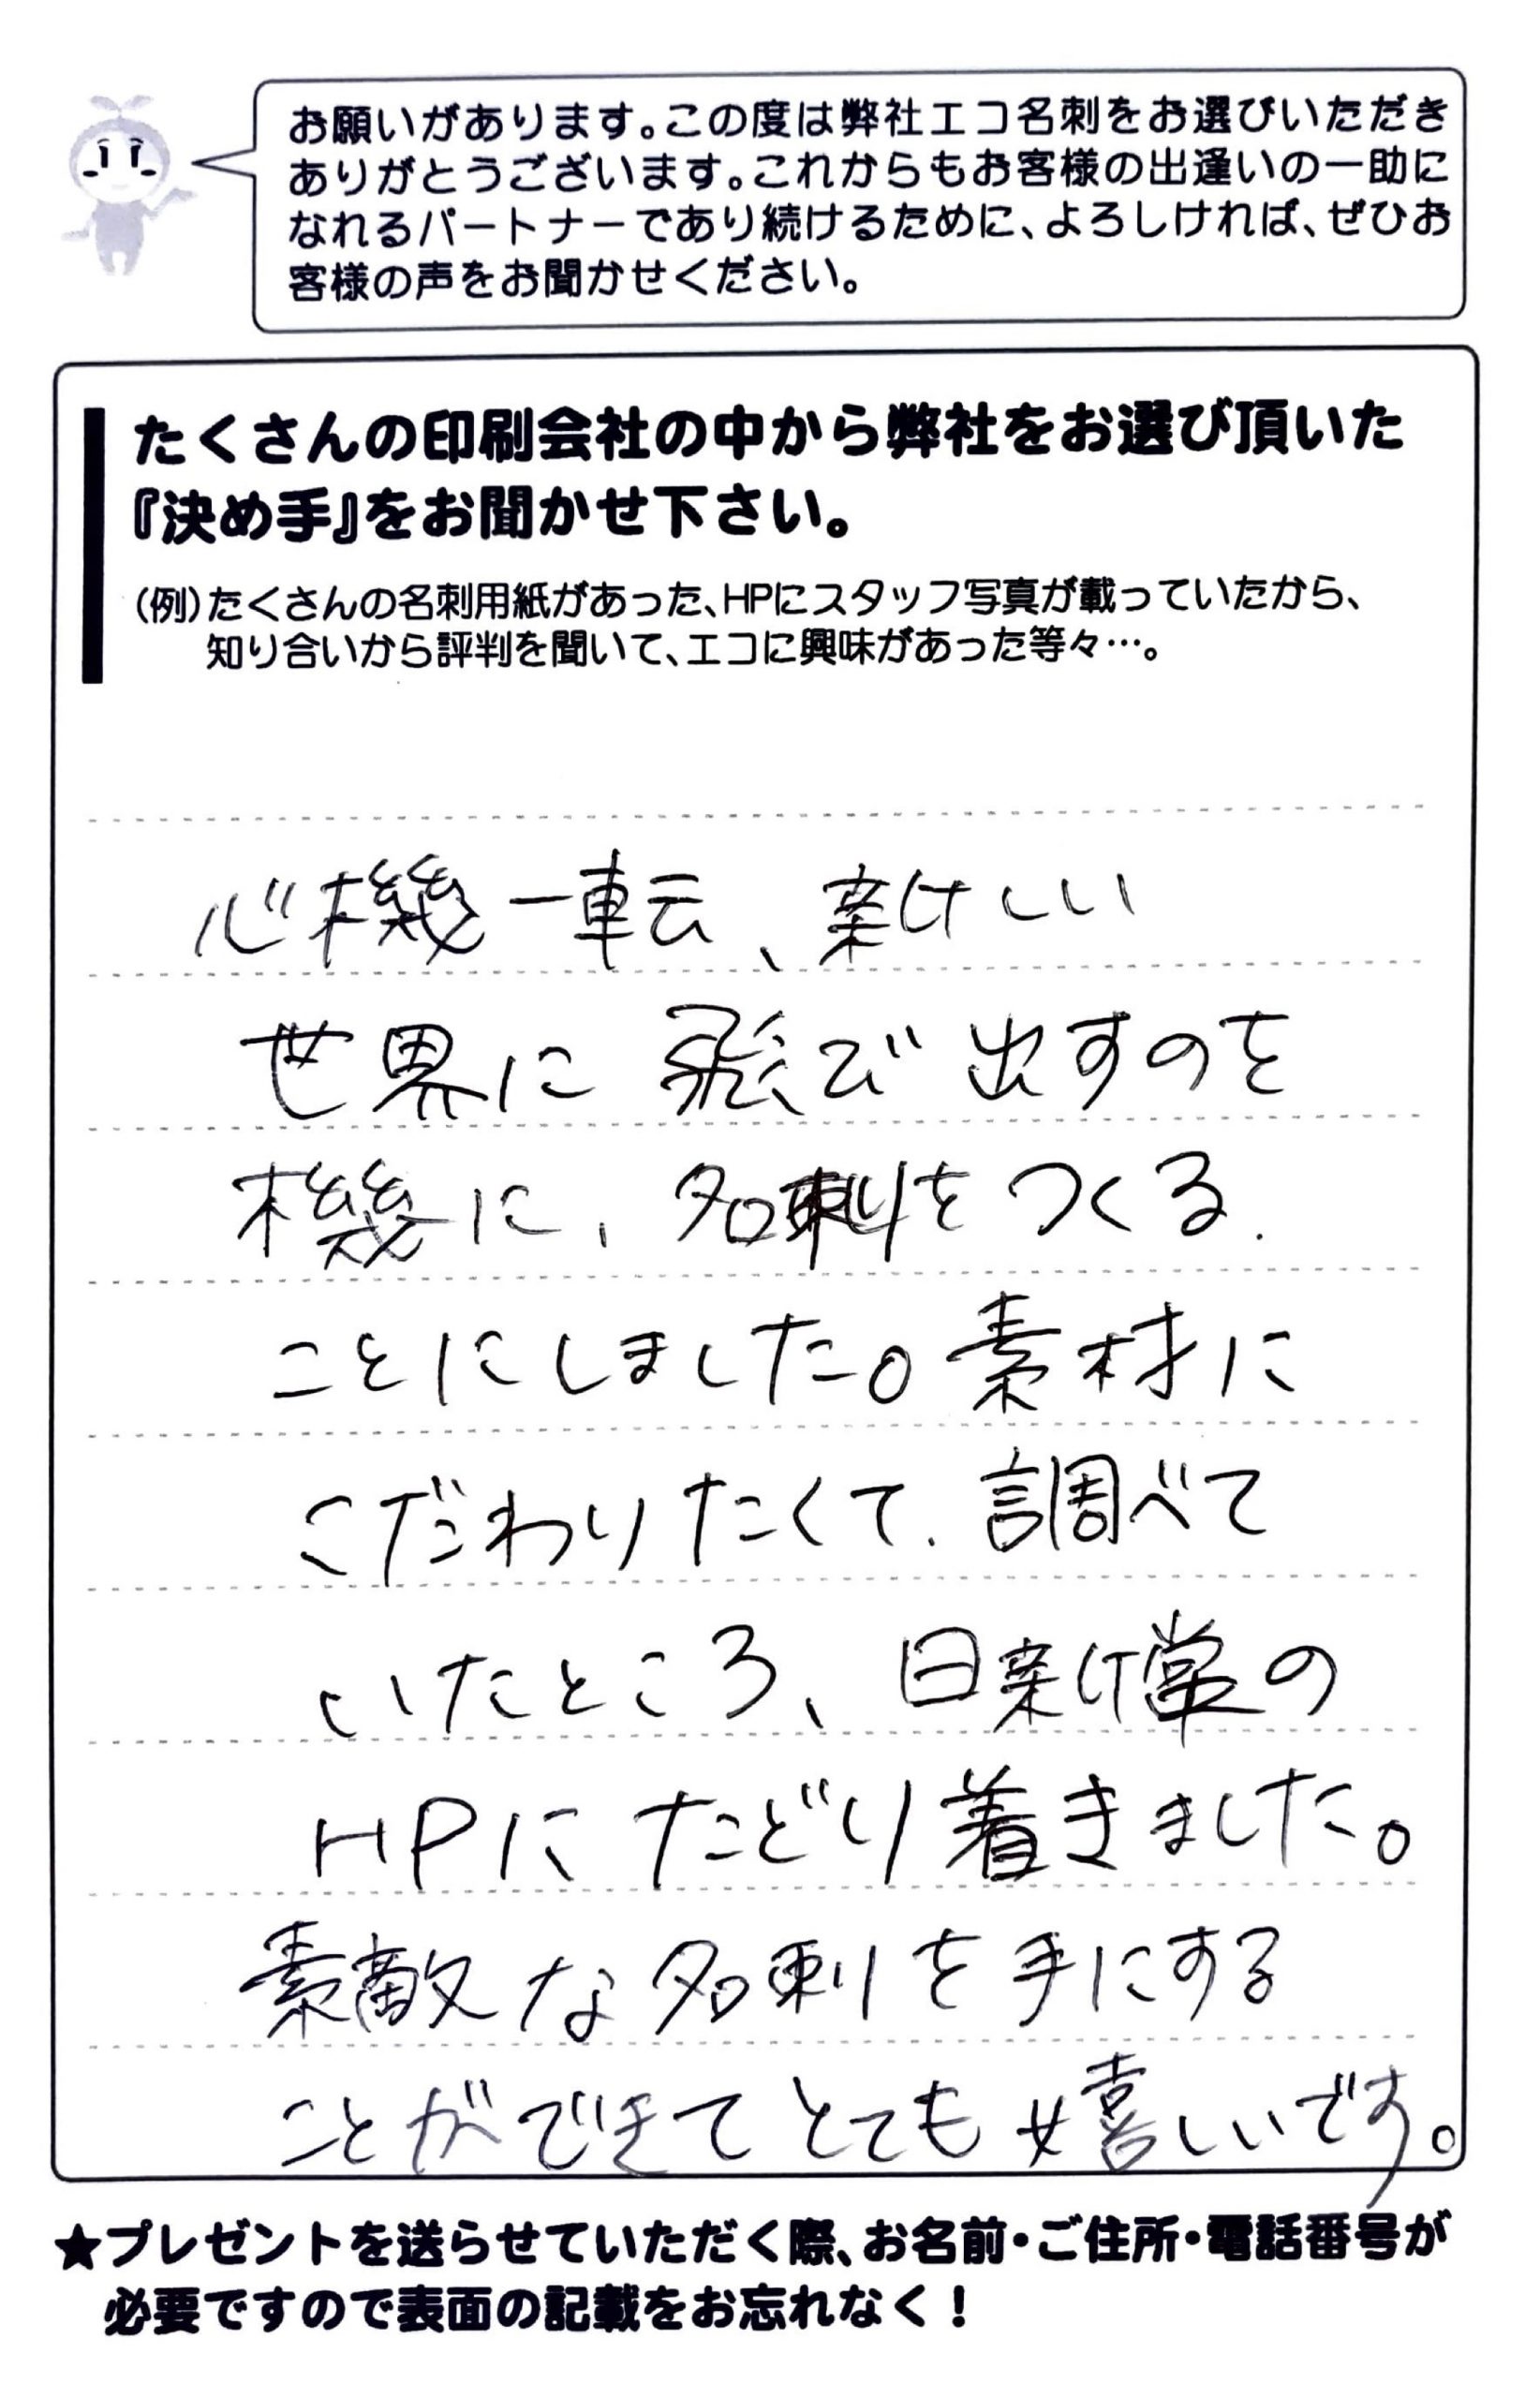 お願いがあります。この度は弊社エコ名刺をお選びいただき
ありがとうございます。これからもお客様の出逢いの一助に
なれるパートナーであり続けるために、よろしければ、ぜひお
客様の声をお聞かせください。
たくさんの印刷会社の中から弊社をお選び頂いた
『決め手』をお聞かせ下さい。
(例)たくさんの名刺用紙があった、HPにスタッフ写真が載っていたから、
知り合いから評判を聞いて、エコに興味があった等々…。
心機一転、新しい
世界に飛び出すのを
機に、名刺をつくる
ことにしました。素材に
こだわりたくて、調べて
いたところ、日新堂の
HPにたどり着きました。
素敵な名刺を手にする
ことができてとても嬉しいです。
★プレゼントを送らせていただく際、お名前・ご住所・電話番号が
必要ですので表面の記載をお忘れなく!